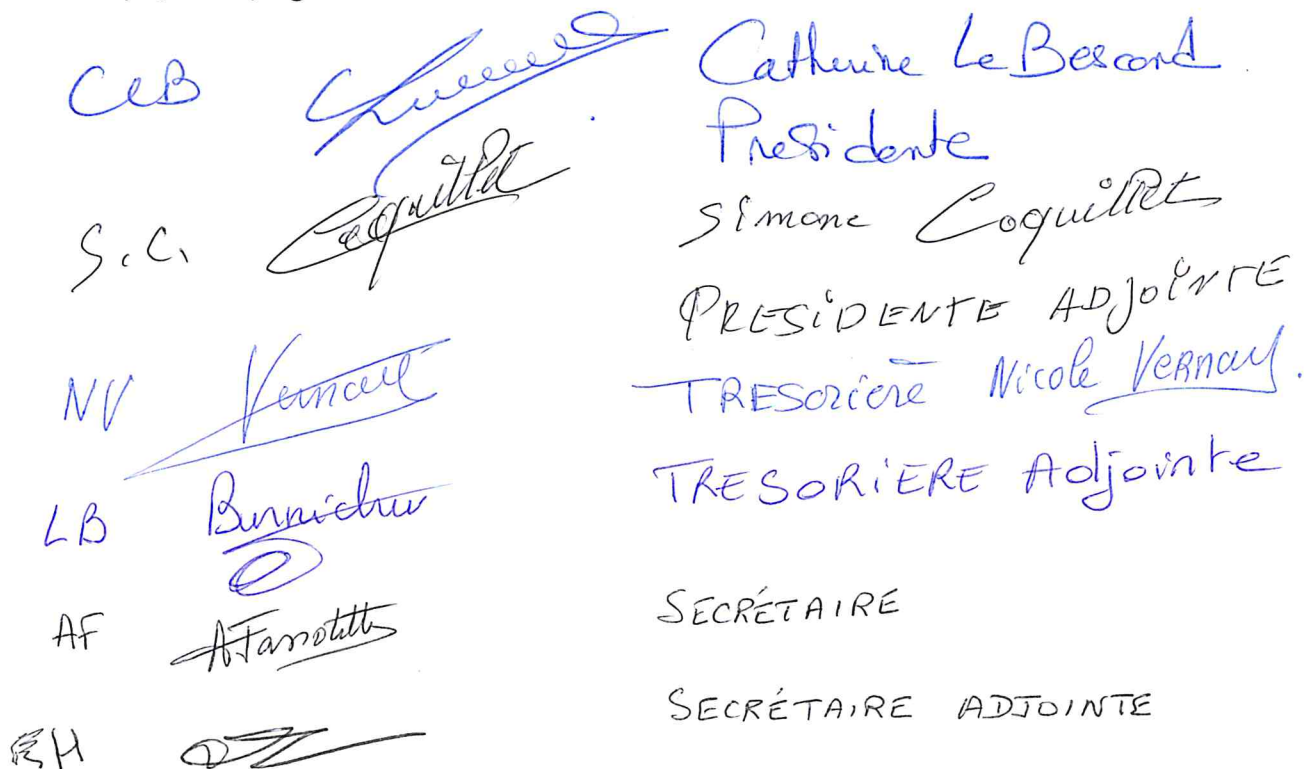 CLB Catherine Le Bescond
Presidente
S.C. Coquillet Simone Coquillet
PRESIDENTE ADJOINTE
NV Vernay TRESORIÈRE Nicole VERNAY.
LB TRESORIERE Adjointe
AF SECRÉTAIRE
SECRÉTAIRE ADJOINTE